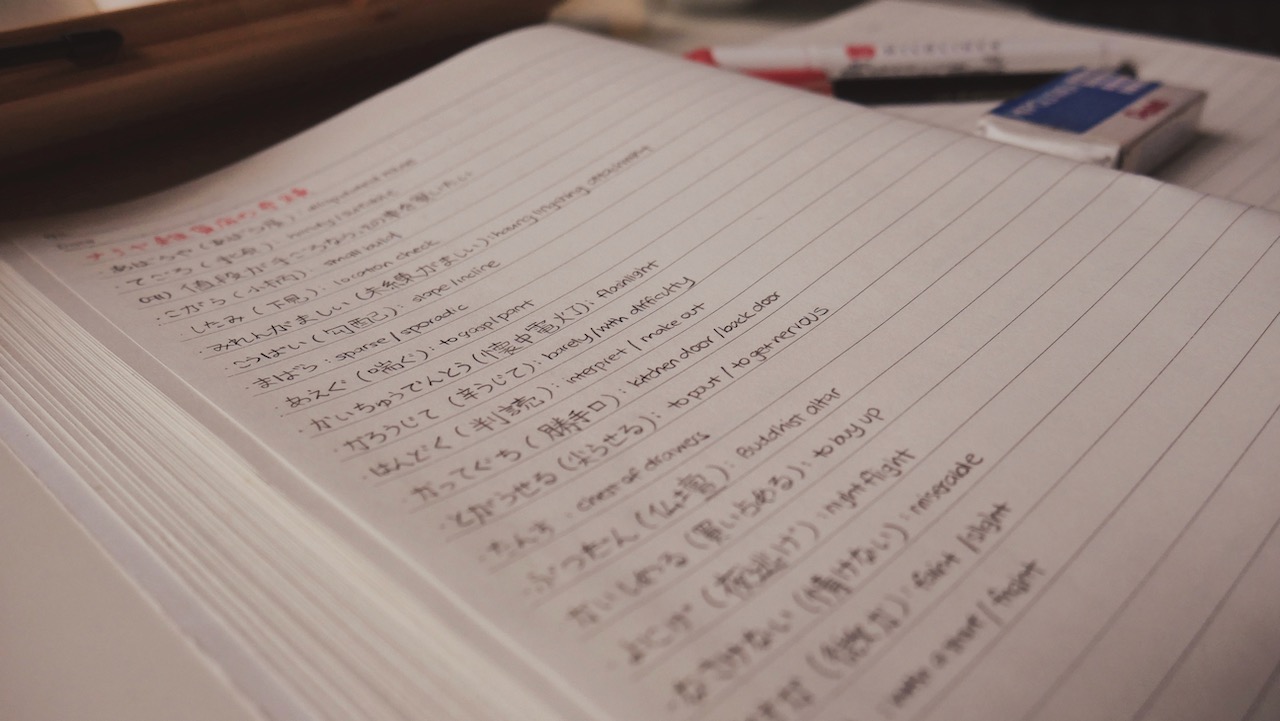 ナミヤ雑貨店の
・あばらや (あばら屋): dilapidated house
・てごろ (手頃): handy/suitable
値段が手ごろなら
・こがら (小柄): small build
・したみ (下見): location check
・みれんがましい (未練がましい): having lingering attachments
・こうばい (勾配): slope/incline
・まばら: sparse/sporadic
・あえぐ (喘ぐ): to gasp/pant
・かいちゅうでんとう (懐中電灯): flashlight
・かろうじて (辛うじて): barely/with difficulty
・はんどく (判読): interpret / make out
・かってぐち (勝手口): kitchen door/back door
・とがらせる (尖らせる): to pout / to get nervous
・たんす: chest of drawers
・ぶつだん (仏壇): Buddhist altar
かいしめる (買い占める): to buy up
・よにげ (夜逃げ): night flight
・なさけない (情けない): miserable
(微か): faint / slight
with a start / fright
Pentel